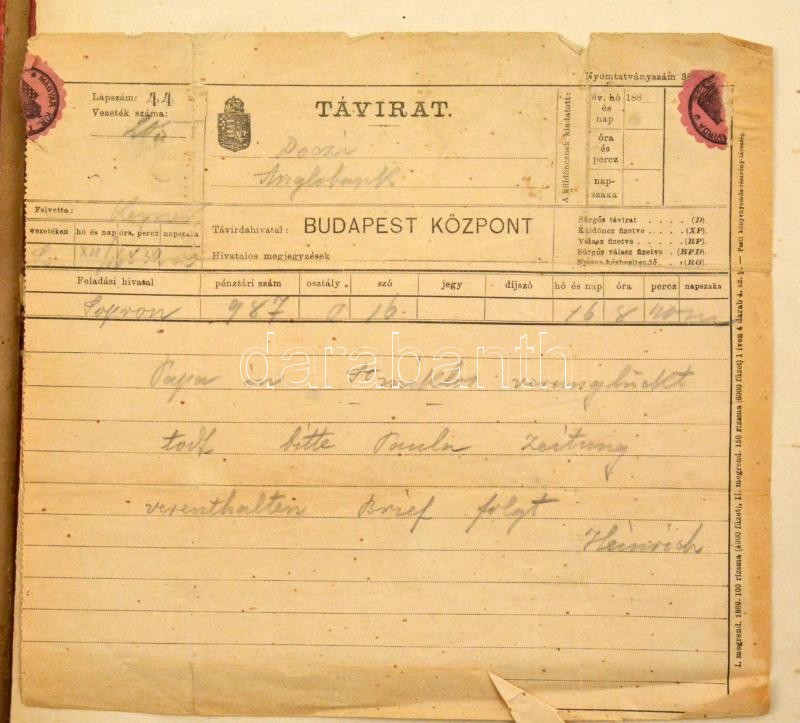 Nyomtatványszám
Lapszám: 44
Vezeték száma:
TÁVIRAT.
A küldöncznek kiadatott:
év, hó 188
és
nap
óra
és
percz
nap-
szaka
Anglobank
Felvette:
vezetéken hó és nap óra, percz napszaka
Távirdahivatal: BUDAPEST KÖZPONT
Hivatalos megjegyzések
Sürgős távirat . . . . . (D).
Küldöncz fizetve . . . . (XP)
Válasz fizetve . . . . (RP)
Sürgős válasz fizetve . . (RPD)
Nyitva kézbesítendő . . (RO)
Feladási hivatal pénztári szám osztály szó jegy díjszó hó és nap óra percz napszaka
Sopron 987 16 16 8
Papa in verunglückt
todt bitte Paula Zeitung
verenthalten Brief folgt
Heinrich
darabanth
I. megrend. 1889. 100 rizsma (4000 füzet), II. megrend. 150 rizsma (6000 füzet) 1 íven 4 darab 4. sz. p. — Pesti könyvnyomda-részvény-társaság.